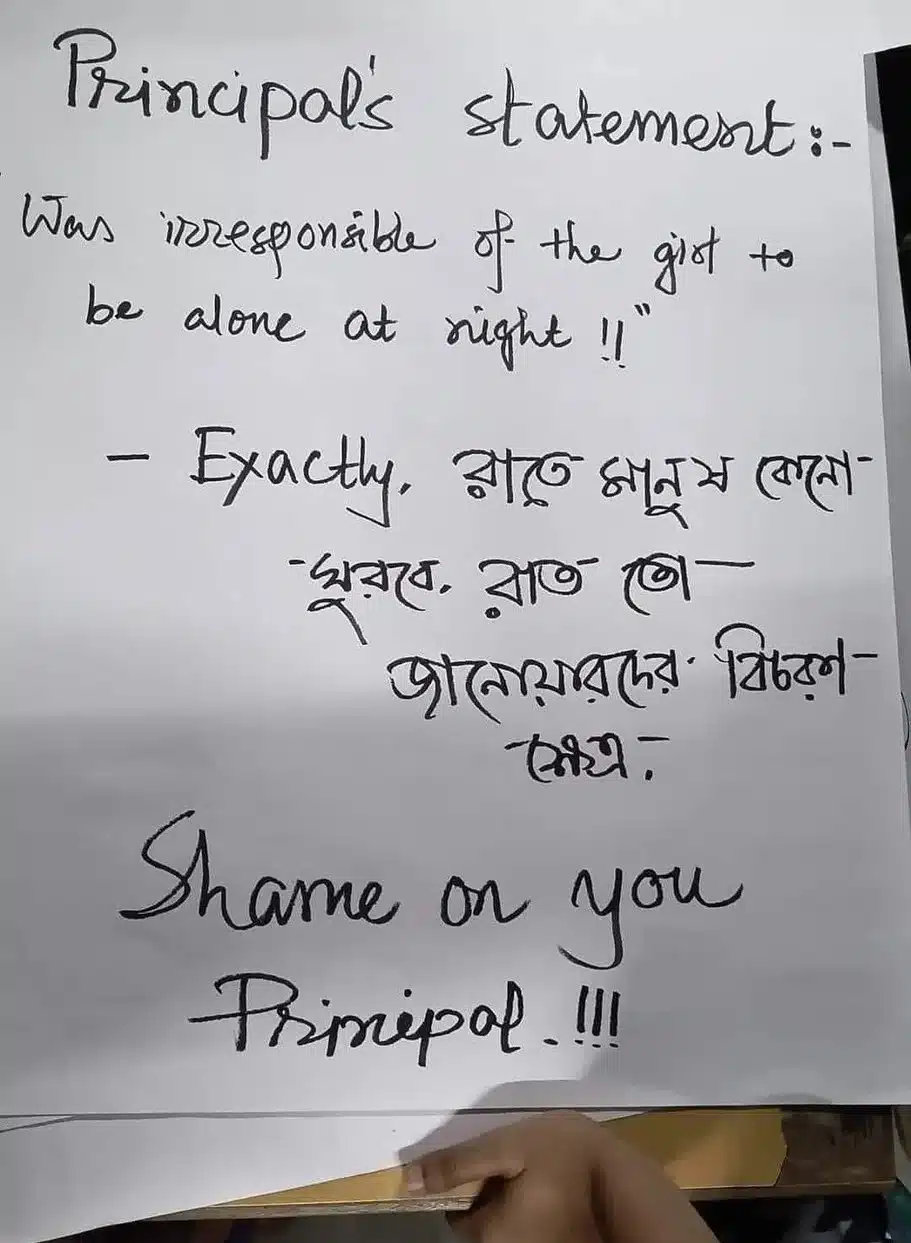 Principal's statement:-
Was irresponsible of the girl to
be alone at night !!"
- Exactly, রাতে মানুষ কেনো
ঘুরবে, রাত তো
জানোয়ারদের বিচরণ
ক্ষেত্র.
Shame on you
Principal.!!!